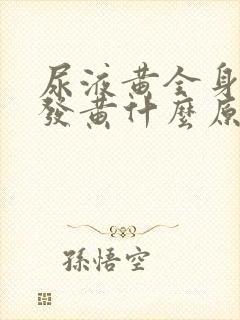 尿液黄全身
發黄什麼原
孫悟空